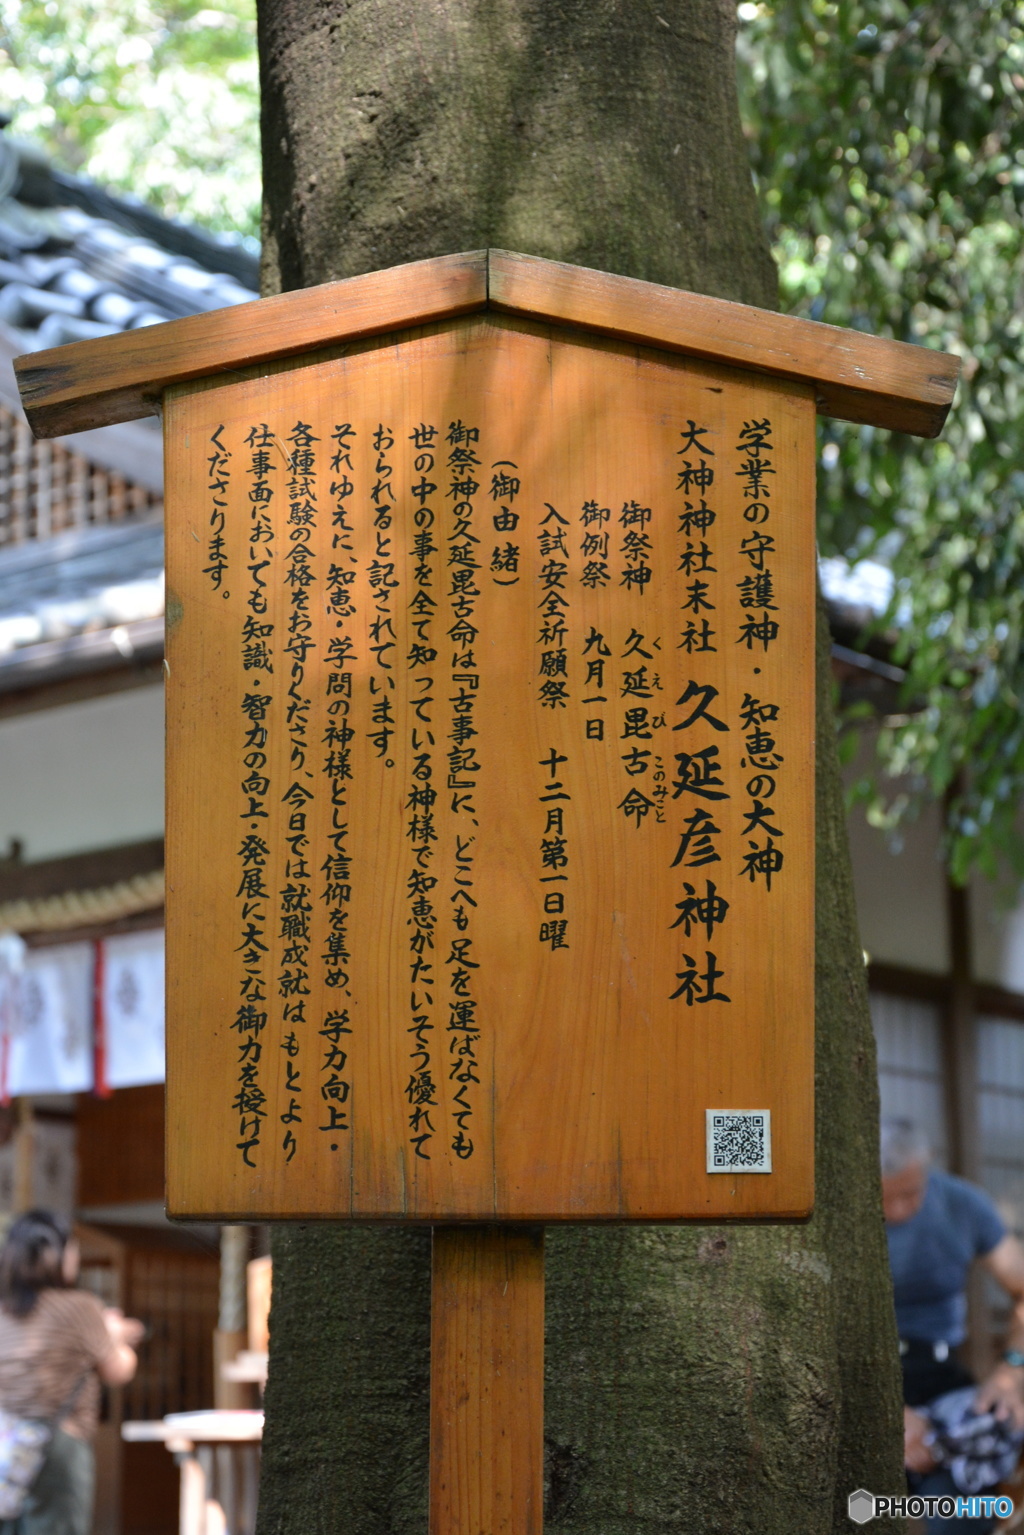 学業の守護神・知恵の大神
大神神社末社 久延彦神社
御祭神 久延毘古命
くえびこのみこと
御例祭 九月一日
入試安全祈願祭 十二月第一日曜
（御由緒）
御祭神の久延毘古命は『古事記』に、どこへも足を運ばなくても
世の中の事を全て知っている神様で知恵がたいそう優れて
おられると記されています。
それゆえに、知恵・学問の神様として信仰を集め、学力向上・
各種試験の合格をお守りくださり、今日では就職成就はもとより
仕事面においても知識・智力の向上・発展に大きな御力を授けて
くださります。
PHOTOHITO